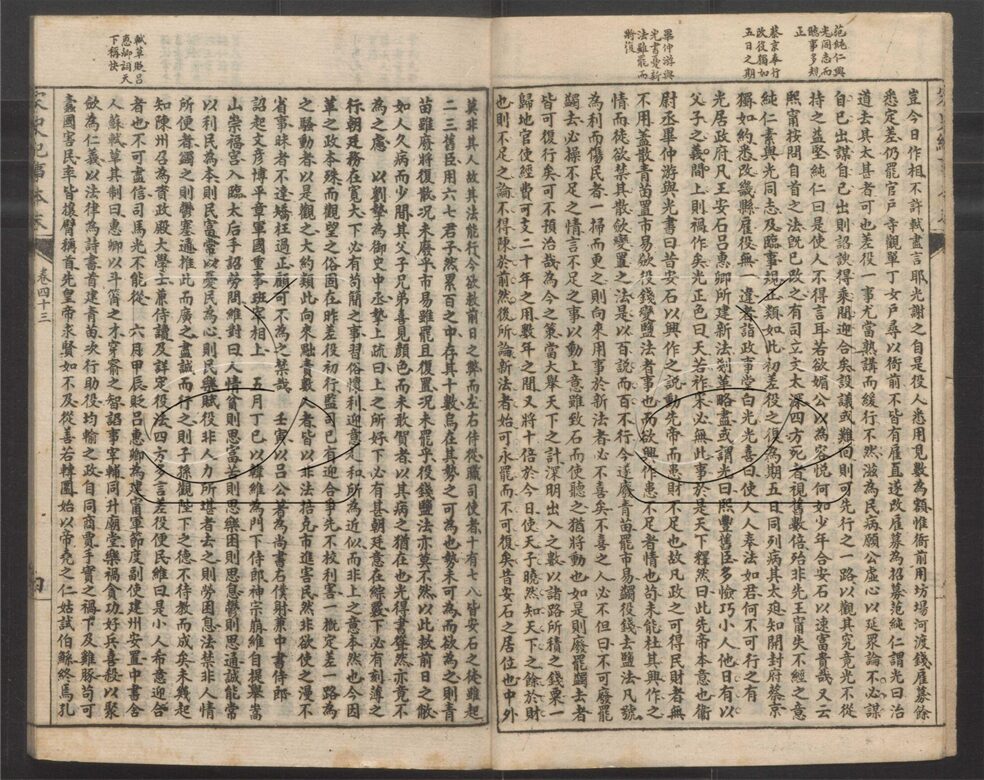 范純仁與
光同志而
臨事多規
正
蔡京奉行
改役獨如
五日之期
畢仲游與
光書憂新
法雖罷而
將復
豈今日作相不許軾盡言耶光謝之自是役人悉用見數為額惟衙前用坊場河渡錢雇募餘
悉定差仍罷官戶寺觀單丁女戶尋以衙前不皆有雇直遂改雇募為招募范純仁謂光曰治
道去其太甚者可也差役一事尤當熟講而緩行不然滋為民病願公虛心以延眾論不必謀
自己出謀自己出則諂諛得乘間迎合矣設議或難回則可先行之一路以觀其究竟光不從
持之益堅純仁曰是使人不得言耳若欲媚公以為容悅何如少年合安石以速富貴哉又云
熙寧按問自首之法既已改之有司立文太深四方死者視舊數倍殆非先王寧失不經之意
純仁素與光同志及臨事規正類如此初差役之復為期五日同列病其太迫知開封府蔡京
獨如約悉改畿縣雇役無一違者詣政事堂白光光喜曰使人人奉法如君何不可行之有
光居政府凡王安石呂惠卿所建新法剗革略盡或謂光曰熙豐舊臣多憸巧小人他日有以
父子之義間上則禍作矣光正色曰天若祚宋必無此事於是天下釋然曰此先帝本意也衞
尉丞畢仲游與光書曰昔安石以興作之說動先帝而患財不足也故凡政之可得民財者無
不用蓋散青苗置市易歛役錢變鹽法者事也而欲興作患不足者情也苟未能杜其興作之
情而徒欲禁其散歛變置之法是以百說而百不行今遂廢青苗罷市易蠲役錢去鹽法凡號
為利而傷民者一掃而更之則向來用事於新法者必不喜矣不喜之人必不但曰不可廢罷
蠲去必操不足之情言不足之事以動上意雖致石而使聽之猶將動也如是則廢罷蠲去者
皆可復行矣可不預治哉為今之策當大舉天下之計深明出入之數以諸路所積之錢粟一
歸地官使經費可支二十年之用數年之間又將十倍於今日使天子曉然知天下之餘於財
也則不足之論不得陳於前然後所論新法者始可永罷而不可復矣昔安石之居位也中外
軾草貶呂
惠卿詞天
下稱快
莫非其人故其法能行今欲救前日之弊而左右侍從職司使者十有七八皆安石之徒雖起
二三舊臣用六七君子然累百之中存其十數烏在其勢之可為也勢未可為而欲為之則青
苗雖廢將復散況未廢乎市易雖罷且復置況未罷乎役錢鹽法亦莫不然以此救前日之敝
如人久病而少間其父子兄弟喜見顏色而未敢賀者以其病之猶在也光得書聳然亦竟不
為之慮　以劉摯為御史中丞摯上疏曰上之所好下必有甚朝廷意在綜覈下必有刻薄之
行朝廷務在寬大下必有苟簡之事習俗懷利迎意趨和所為近似而非上之意本然也今因
革之政本殊而觀望之俗固在昨差役初行監司已有迎合爭先不校利害一概定差一路為
之騷動者以是觀之大約類此向來黜責數人者皆以非法掊克市進害民然非欲使之漫不
省事昧者不達矯枉過正顧可不為之禁哉　壬寅以呂公著為尚書右僕射兼中書侍郎
詔起文彥博平章軍國重事班宰相上　五月丁巳以韓維為門下侍郎神宗崩維自提舉嵩
山崇福宮入臨太后手詔勞問維對曰人情貧則思富苦則思樂困則思息鬱則思通誠能常
以利民為本則民富常以憂民為心則民樂賦役非人力所堪者去之則勞困息法禁非人情
所便者蠲之則鬱塞通推此而廣之盡誠而行之則子孫觀陛下之德不待教而成矣未幾起
知陳州召為資政殿大學士兼侍讀及詳定役法四方多言差役便民維曰是小人希意迎合
者也不可盡信司馬光不能從　六月甲辰貶呂惠卿為建寧軍節度副使建州安置中書舍
人蘇軾草其制曰惠卿以斗筲之才穿窬之智諂事宰輔同升廟堂樂禍貪功好兵喜殺以聚
歛為仁義以法律為詩書首建青苗次行助役均輸之政自同商賈手實之禍下及雞豚苟可
蠹國害民率皆攘臂稱首先皇帝求賢如不及從善若轉圜始以帝堯之仁姑試伯鯀終焉孔
卷四十三